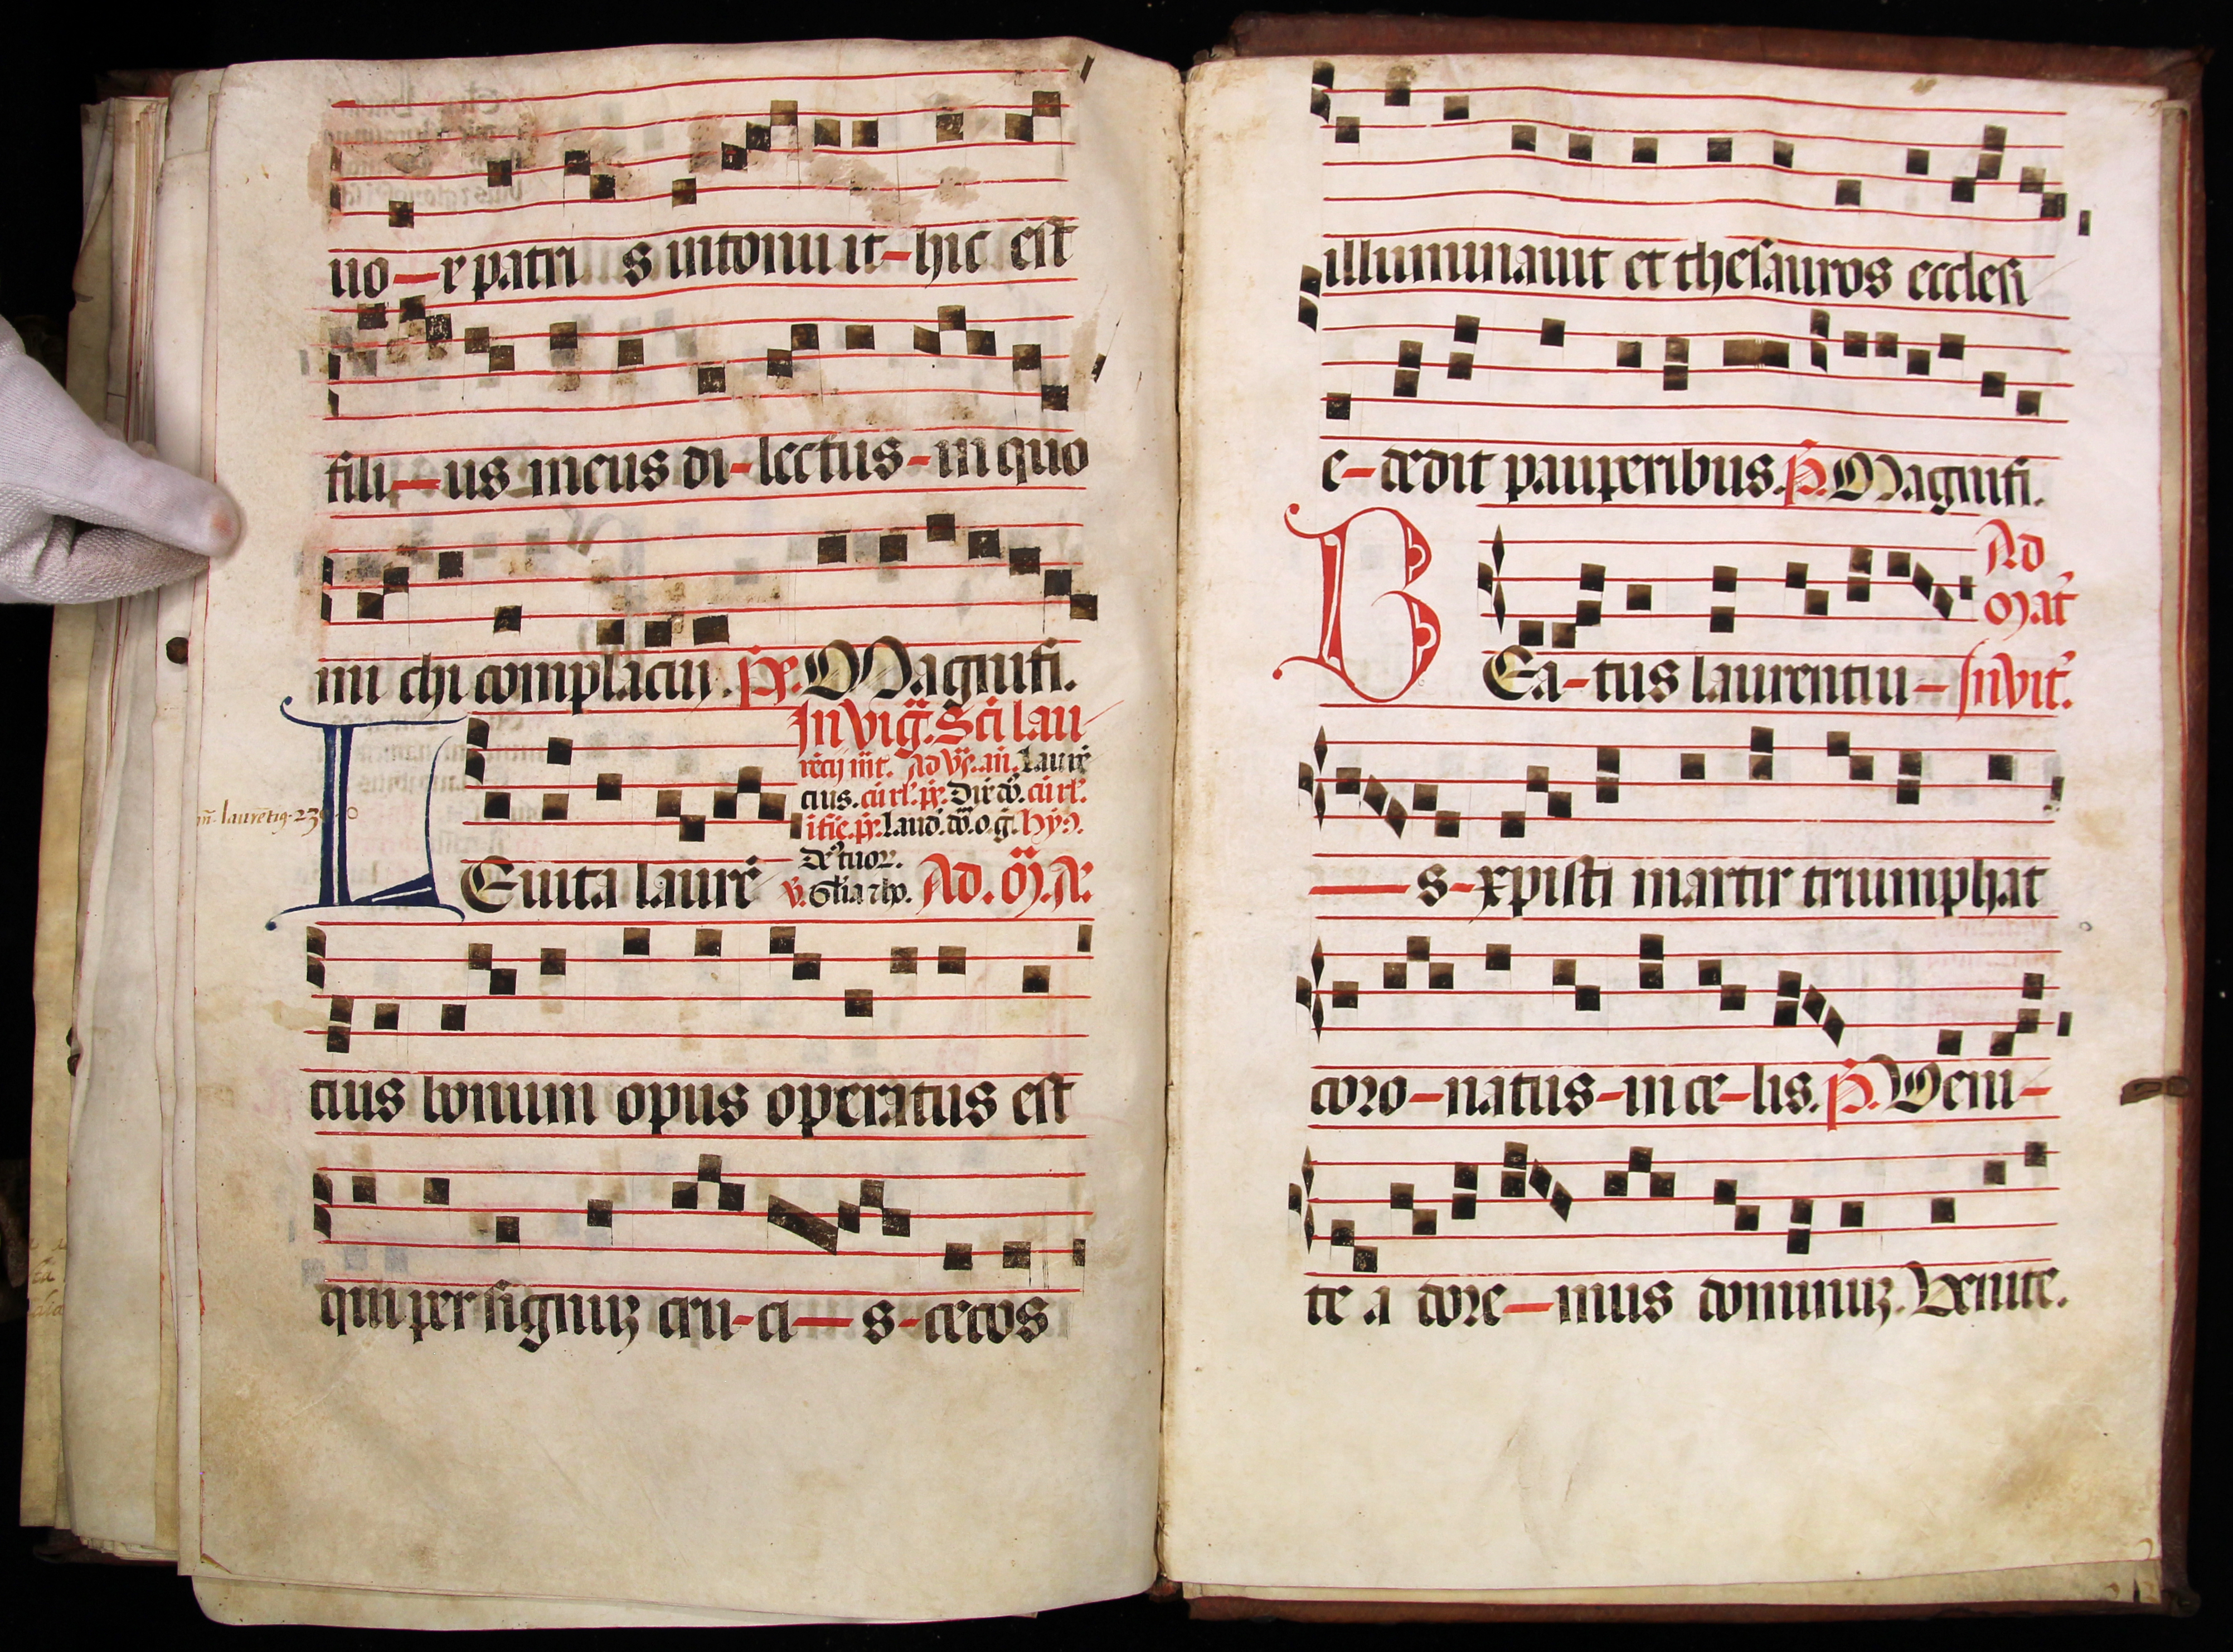 uo-x patri s intonu it-hic est
fili-us meus di-lectus-in quo
mi chi complacui. ps. Magnifi.
In vig. Sci lau
rẽcij mr. Ad vs. añ. Laurẽ
cius. cũ rl'. ps. Dix dñ. cũ rl'.
ps. Laud. dñ. o. g. hyꝰ.
De tuor.
LEuita laurẽ v. Gl'ia rhõ. Ad. M. A.
tius bonum opus operatus est
qui per signuꝫ cru-ci-s-cecos
illuminauit et thesauros ecclesi
e-dedit pauperibus. ps. Magnifi.
Ad
Mat
BEa-tus laurentiu-Inuit.
-s-xpisti martir triumphat
coro-natus-in ce-lis. ps. Ueni-
te a dore-mus dominuꝫ. Venite.